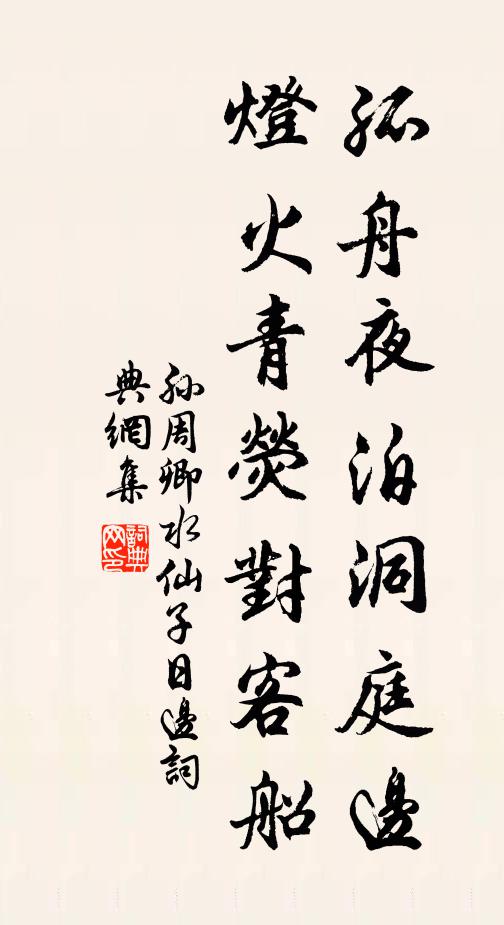 孤舟夜泊洞庭邊
燈火青熒對客船
孫周卿水仙子日邊詞
典網集
詞典網印